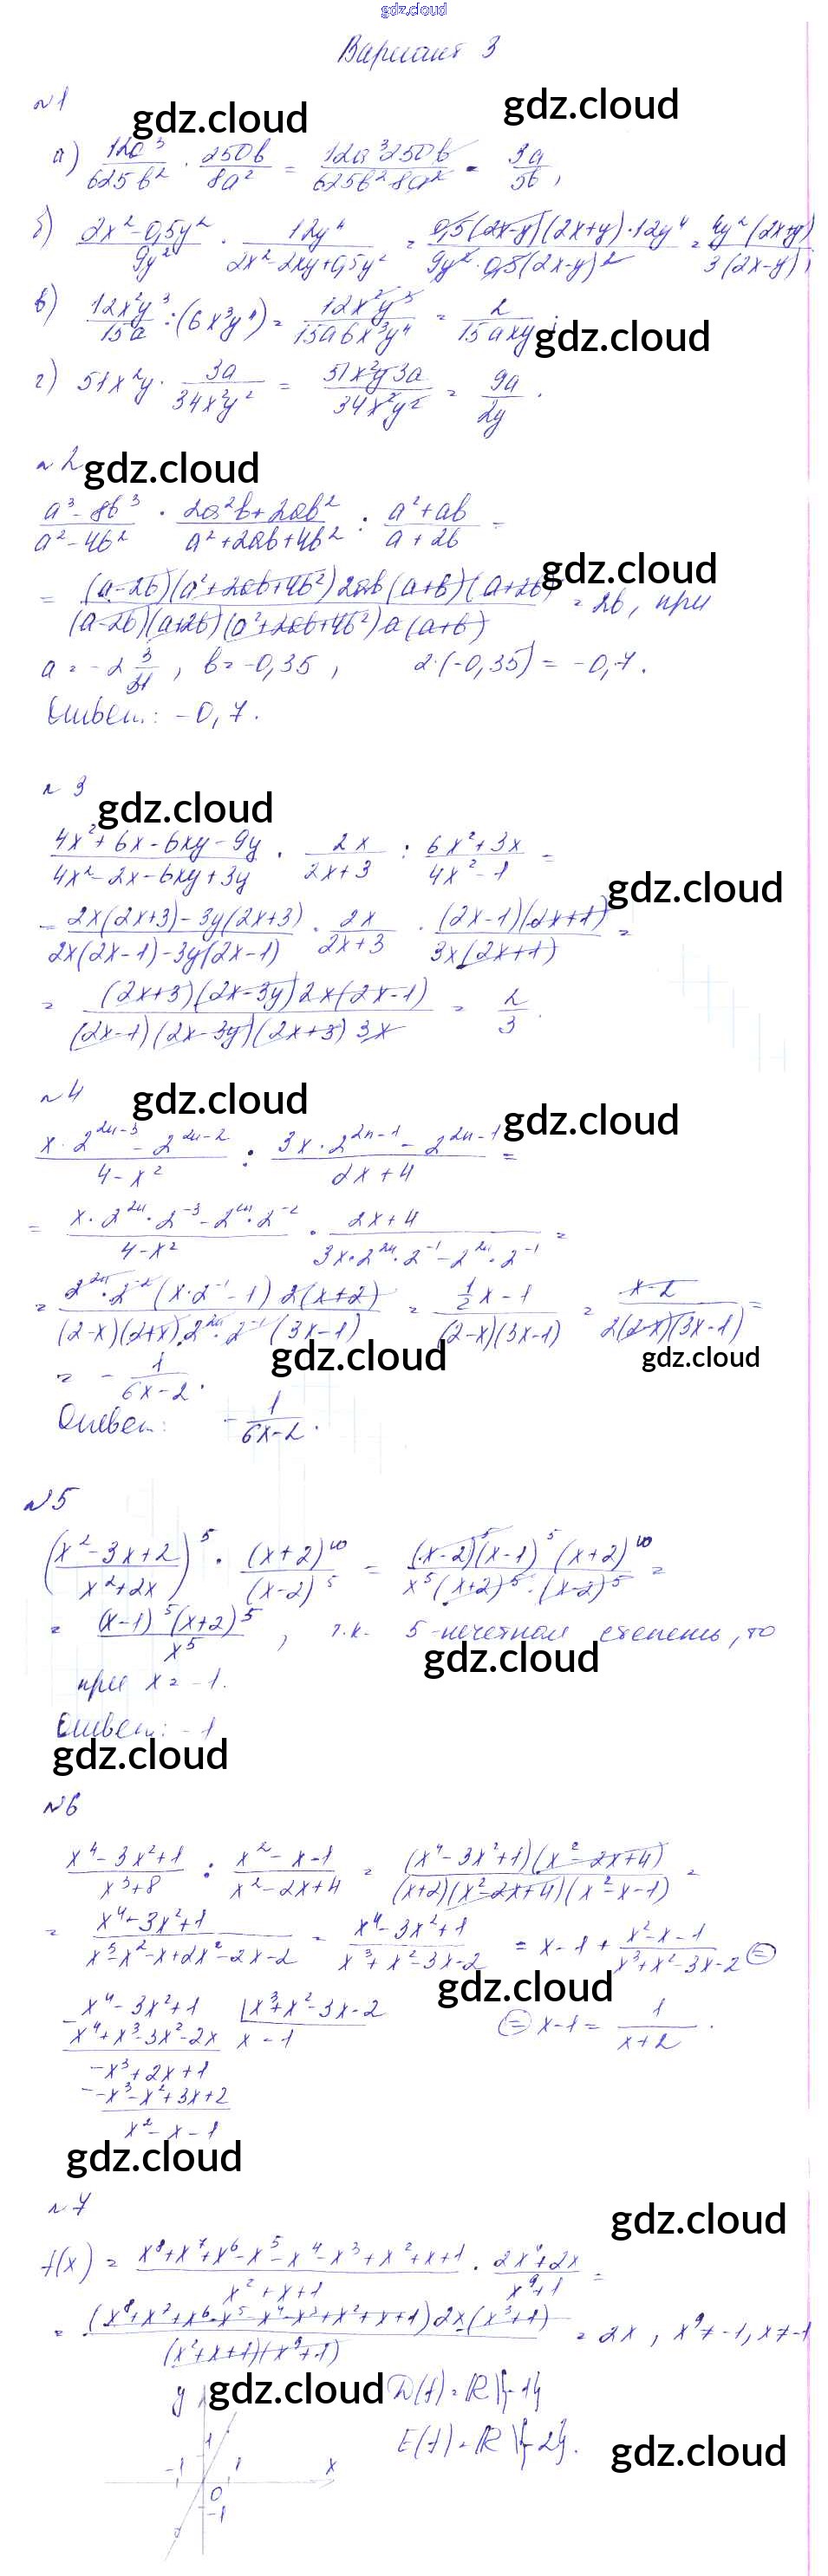 gdz.cloud
Вариант 3
№1
gdz.cloud gdz.cloud
а) 12a³/625b² · 250b/8a² = 12a³250b/625b²8a² = 3a/5b,
б) 2x²-0,5y²/9y² · 12y⁴/2x²-2xy+0,5y² = 0,5(2x-y)(2x+y)·12y⁴/9y²·0,5(2x-y)² = 4y²(2x+y)/3(2x-y);
в) 12x²y³/15a : (6x³y⁴) = 12x²y³/15a6x³y⁴ = 2/15axy;
gdz.cloud
г) 51x²y · 3a/34x²y² = 51x²y3a/34x²y² = 9a/2y.
№2
gdz.cloud
a³-8b³/a²-4b² · 2a²b+2ab²/a²+2ab+4b² : a²+ab/a+2b =
gdz.cloud
= (a-2b)(a²+2ab+4b²)2ab(a+b)(a+2b)/(a-2b)(a+2b)(a²+2ab+4b²)a(a+b) = 2b, при
a = -2 3/31, b = -0,35, 2·(-0,35) = -0,7.
Ответ: -0,7.
№3
gdz.cloud
4x²+6x-6xy-9y/4x²-2x-6xy+3y · 2x/2x+3 : 6x²+3x/4x²-1 =
gdz.cloud
= 2x(2x+3)-3y(2x+3)/2x(2x-1)-3y(2x-1) · 2x/2x+3 · (2x-1)(2x+1)/3x(2x+1) =
= (2x+3)(2x-3y)2x(2x-1)/(2x-1)(2x-3y)(2x+3)3x = 2/3.
№4
gdz.cloud gdz.cloud
x·2²ⁿ⁻³-2²ⁿ⁻²/4-x² : 3x·2²ⁿ⁻¹-2²ⁿ⁻¹/2x+4 =
= x·2²ⁿ·2⁻³-2²ⁿ·2⁻²/4-x² · 2x+4/3x·2²ⁿ·2⁻¹-2²ⁿ·2⁻¹ =
= 2²ⁿ·2⁻²(x·2⁻¹-1)2(x+2)/(2-x)(2+x)·2²ⁿ·2⁻¹(3x-1) = ½x-1/(2-x)(3x-1) = x-2/2(2-x)(3x-1) =
gdz.cloud gdz.cloud
= -1/6x-2.
Ответ: -1/6x-2.
№5
(x²-3x+2/x²+2x)⁵ · (x+2)¹⁰/(x-2)⁵ = (x-2)⁵(x-1)⁵(x+2)¹⁰/x⁵(x+2)⁵·(x-2)⁵ =
= (x-1)⁵(x+2)⁵/x⁵, т.к. 5-нечетная степень, то
gdz.cloud
при x = -1.
Ответ: -1
gdz.cloud
№6
x⁴-3x²+1/x³+8 : x²-x-1/x²-2x+4 = (x⁴-3x²+1)(x²-2x+4)/(x+2)(x²-2x+4)(x²-x-1) =
= x⁴-3x²+1/x³-x²-x+2x²-2x-2 = x⁴-3x²+1/x³+x²-3x-2 = x-1+x²-x-1/x³+x²-3x-2 =
gdz.cloud
-x⁴-3x²+1 |x³+x²-3x-2 = x-1 = 1/x+2.
x⁴+x³-3x²-2x x-1
-x³+2x+1
-x³-x²+3x+2
x²-x-1
gdz.cloud
№7
gdz.cloud
f(x) = x⁸+x⁷+x⁶-x⁵-x⁴-x³+x²+x+1/x²+x+1 · 2x⁴+2x/x⁹+1 =
= (x⁸+x⁷+x⁶-x⁵-x⁴-x³+x²+x+1)2x(x³+1)/(x²+x+1)(x⁹+1) = 2x, x⁹≠-1, x≠-1
y gdz.cloud D(f) = R\{-1}
1 E(f) = R\{-2}.
gdz.cloud
-1 1 x
0
-1